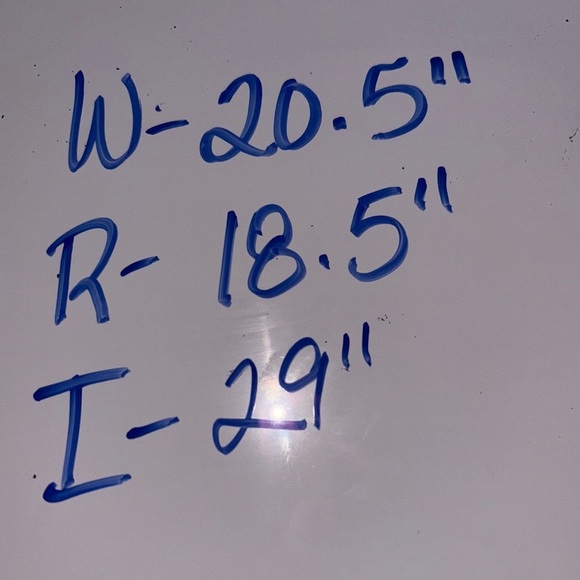 W- 20.5"
R- 18.5"
I- 29"